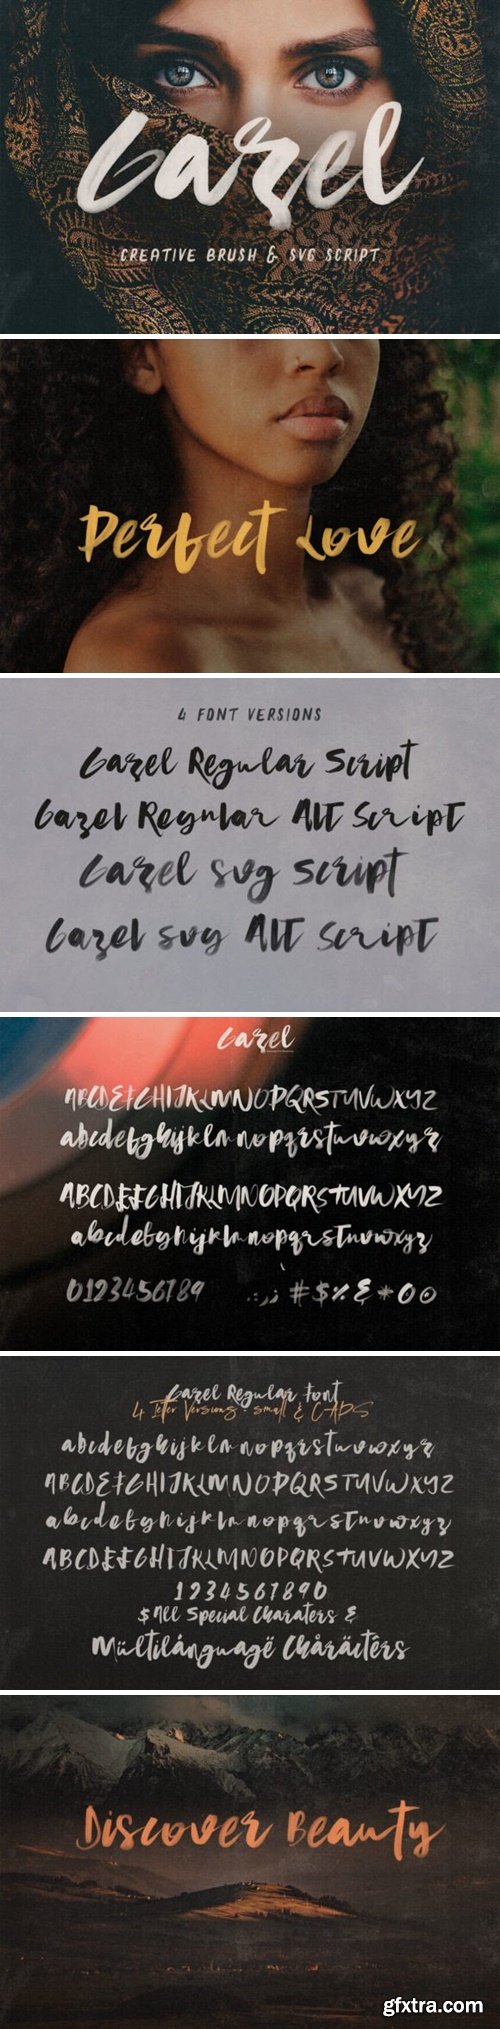 Gazel
CREATIVE BRUSH & SVG SCRIPT
Perfect Love
4 FONT VERSIONS
Gazel Regular Script
Gazel Regular Alt Script
Gazel svg script
Gazel svg Alt script
Gazel
ABCDEFGHIJKLMNOPQRSTUVWXYZ
abcdefghijklmnopqrstuvwxyz
ABCDEFGHIJKLMNOPQRSTUVWXYZ
abcdefghijklmnopqrstuvwxyz
0123456789 .,:; #$%&*()
Gazel Regular Font
4 letter Versions - small & CAPS
abcdefghijklmnopqrstuvwxyz
ABCDEFGHIJKLMNOPQRSTUVWXYZ
abcdefghijklmnopqrstuvwxyz
ABCDEFGHIJKLMNOPQRSTUVWXYZ
1234567890
$ All Special Charaters &
Mültilánguagë Chåräctêrs
Discover Beauty
gfxtra.com